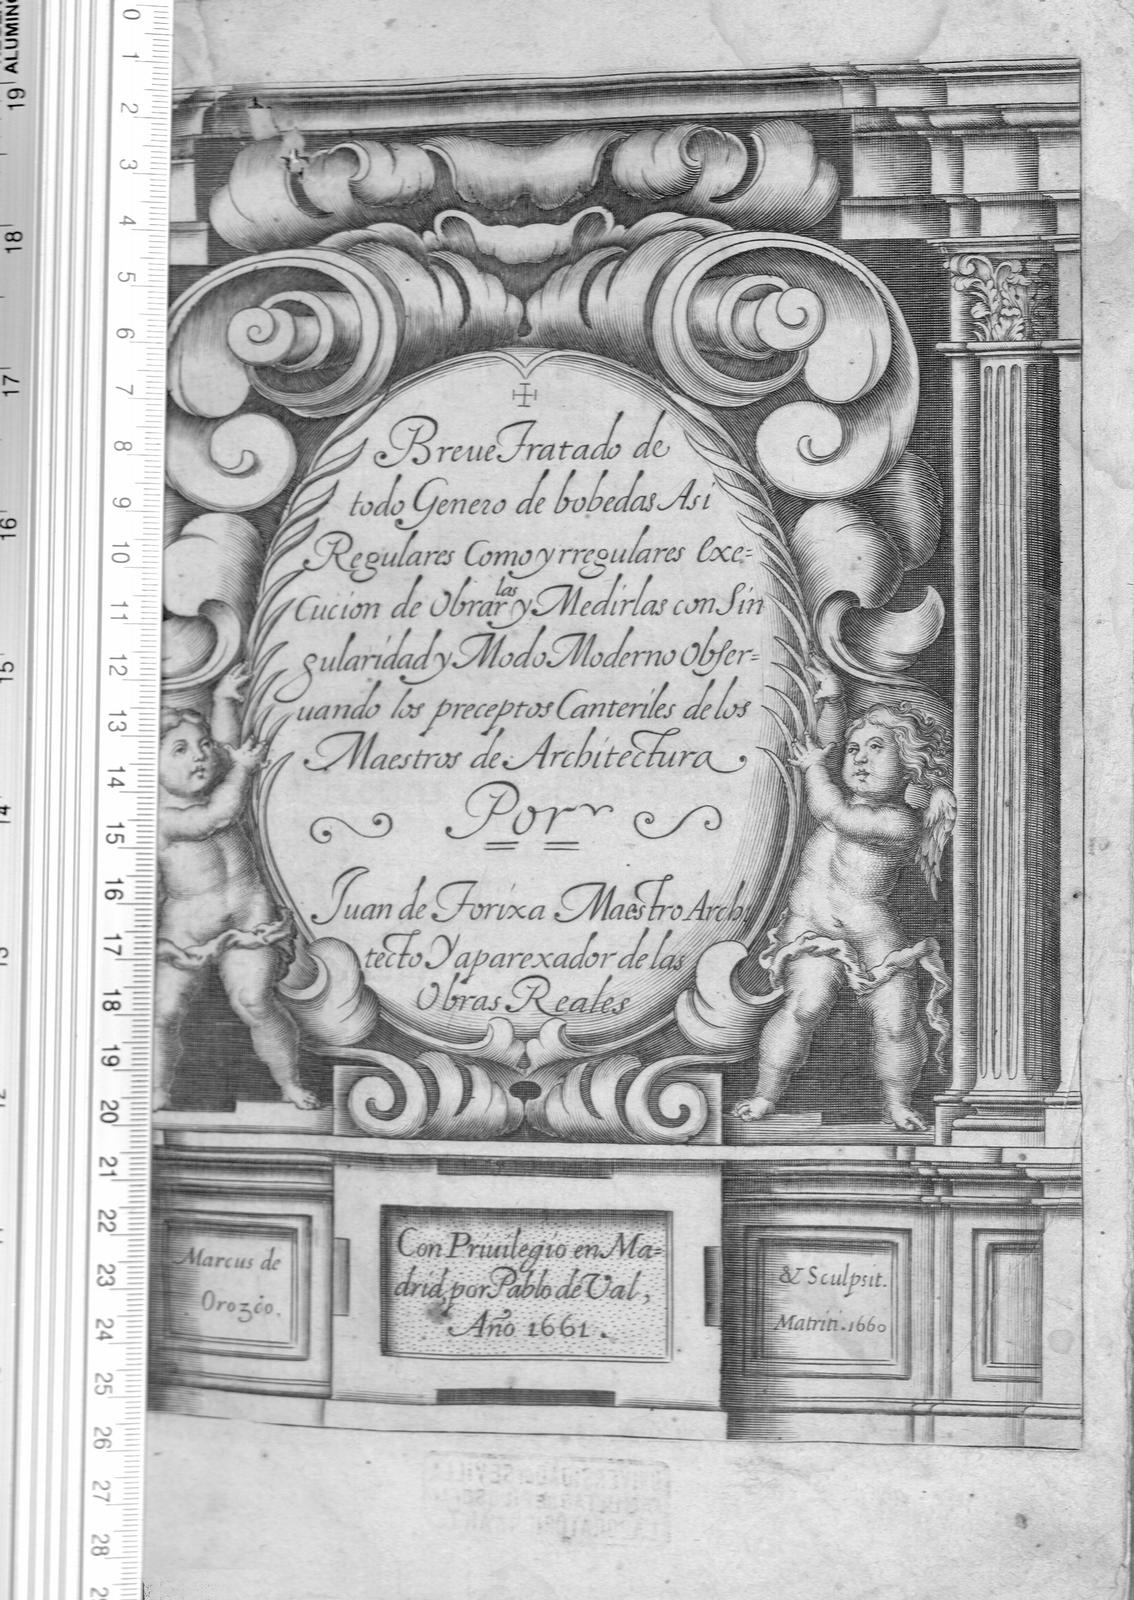 Breue Tratado de
todo Genero de bobedas Asi
Regulares Como yrregulares exe=
Cucion de obrar las y Medirlas con Sin
gularidad y Modo Moderno obser=
uando los preceptos Canteriles de los
Maestros de Architectura
Por
Juan de Torixa Maestro Archi
tecto Y aparexador de las
Obras Reales
Marcus de
Orozco.
Con Priuilegio en Ma-
drid, por Pablo de Val,
Año 1661.
& Sculpsit.
Matriti. 1660
0
1
2
3
4
5
6
7
8
9
10
11
12
13
14
15
16
17
18
19
20
21
22
23
24
25
26
27
28
19
18
17
16
15
14